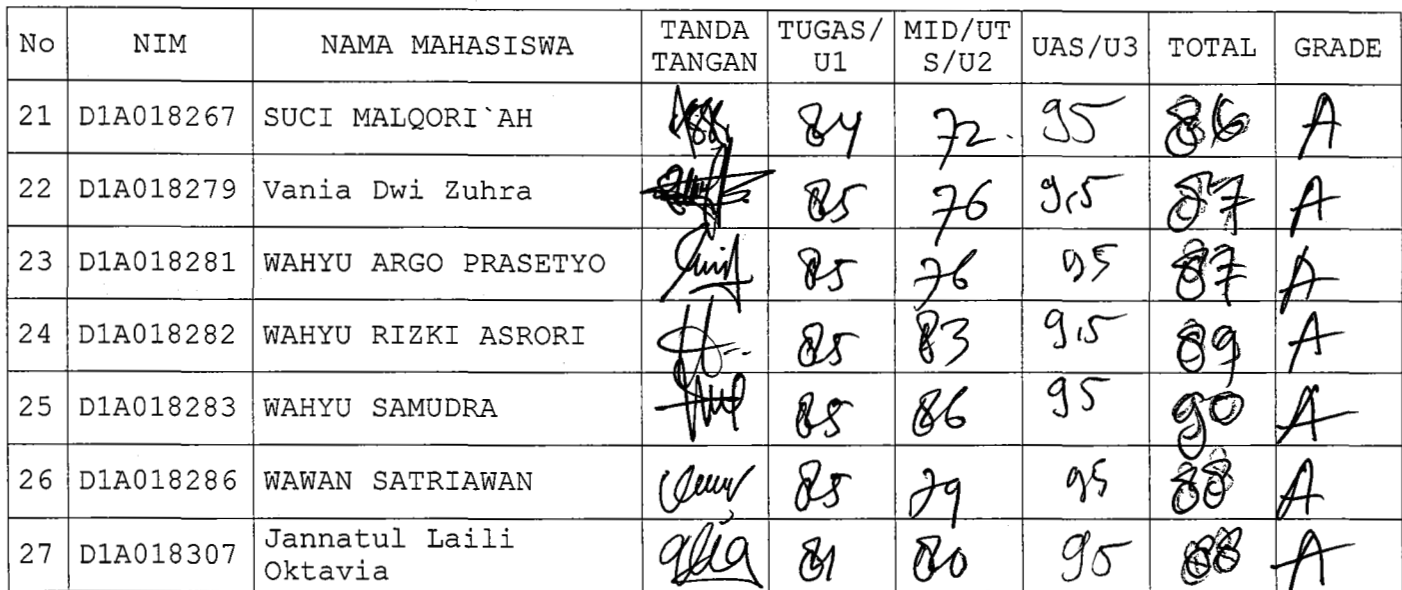 No NIM NAMA MAHASISWA TANDA TANGAN TUGAS/U1 MID/UTS/U2 UAS/U3 TOTAL GRADE
21 D1A018267 SUCI MALQORI`AH 84 72. 95 86 A
22 D1A018279 Vania Dwi Zuhra 85 76 9,5 87 A
23 D1A018281 WAHYU ARGO PRASETYO 85 76 95 87 A
24 D1A018282 WAHYU RIZKI ASRORI 85 83 9.5 89 A
25 D1A018283 WAHYU SAMUDRA 85 86 95 90 A
26 D1A018286 WAWAN SATRIAWAN 85 79 95 88 A
27 D1A018307 Jannatul Laili Oktavia 81 80 95 88 A